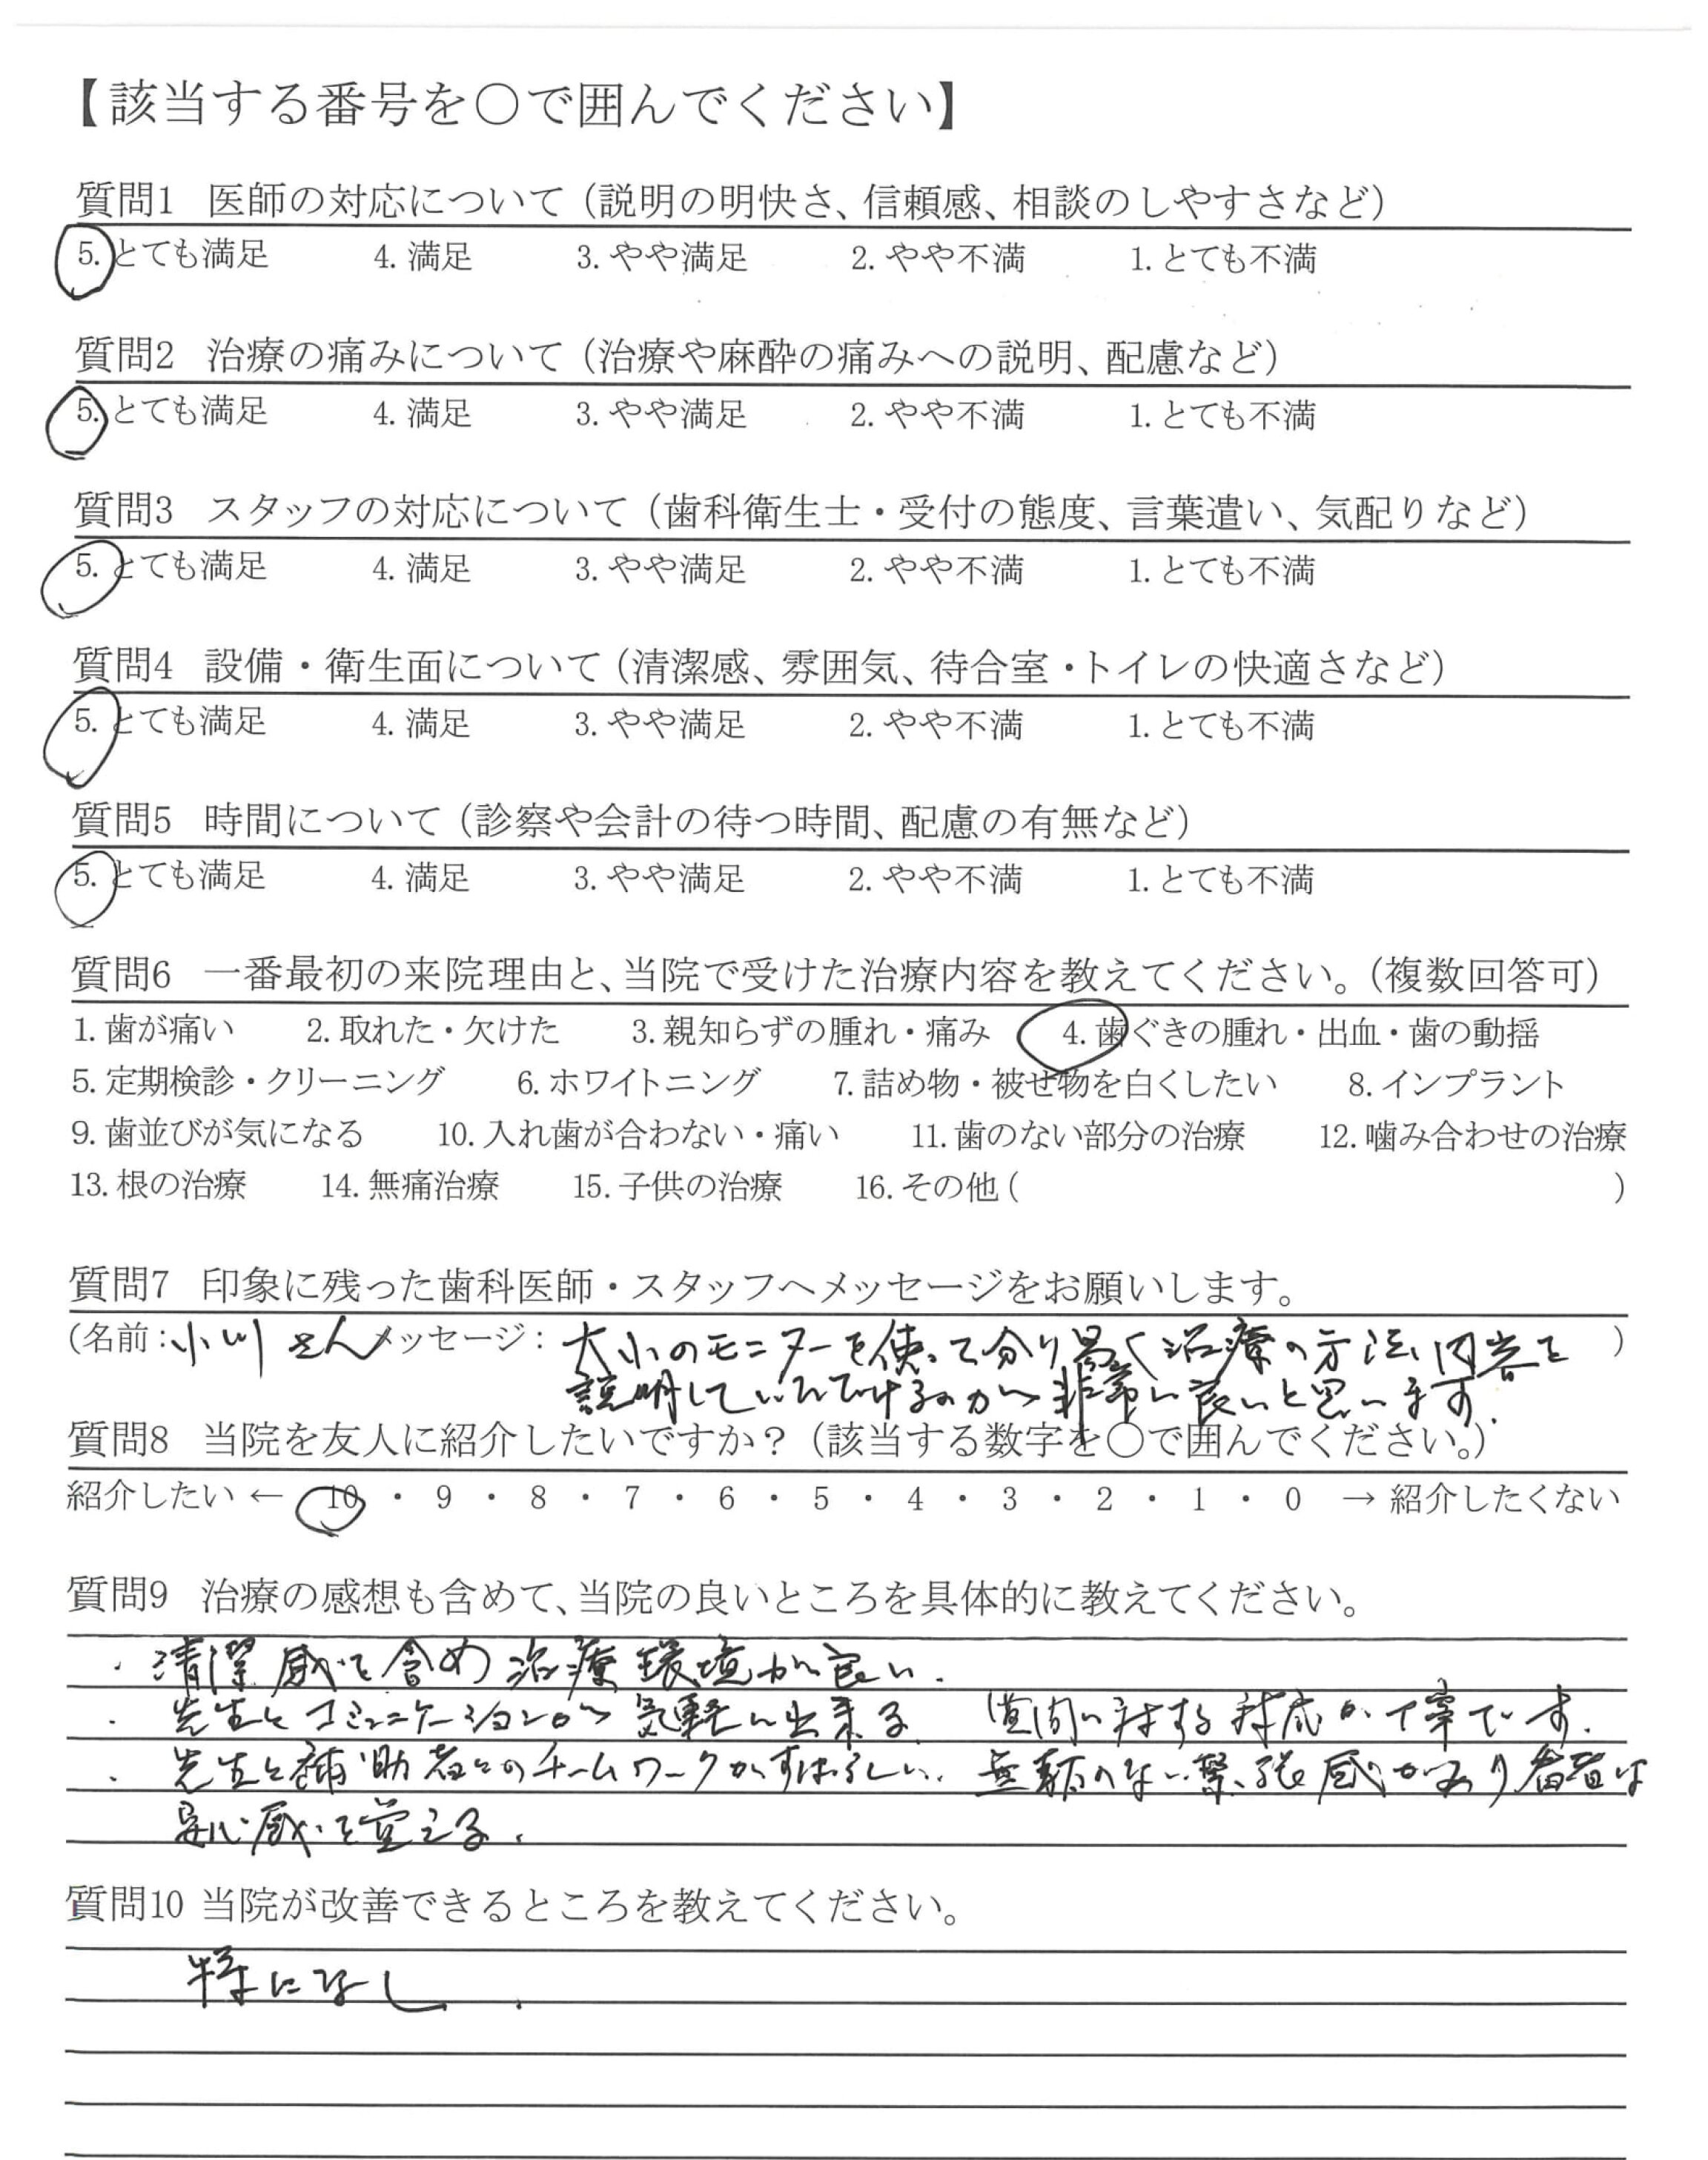 【該当する番号を○で囲んでください】
質問1 医師の対応について（説明の明快さ、信頼感、相談のしやすさなど）
5. とても満足 4. 満足 3. やや満足 2. やや不満 1. とても不満
質問2 治療の痛みについて（治療や麻酔の痛みへの説明、配慮など）
5. とても満足 4. 満足 3. やや満足 2. やや不満 1. とても不満
質問3 スタッフの対応について（歯科衛生士・受付の態度、言葉遣い、気配りなど）
5. とても満足 4. 満足 3. やや満足 2. やや不満 1. とても不満
質問4 設備・衛生面について（清潔感、雰囲気、待合室・トイレの快適さなど）
5. とても満足 4. 満足 3. やや満足 2. やや不満 1. とても不満
質問5 時間について（診察や会計の待つ時間、配慮の有無など）
5. とても満足 4. 満足 3. やや満足 2. やや不満 1. とても不満
質問6 一番最初の来院理由と、当院で受けた治療内容を教えてください。（複数回答可）
1. 歯が痛い 2. 取れた・欠けた 3. 親知らずの腫れ・痛み 4. 歯ぐきの腫れ・出血・歯の動揺
5. 定期検診・クリーニング 6. ホワイトニング 7. 詰め物・被せ物を白くしたい 8. インプラント
9. 歯並びが気になる 10. 入れ歯が合わない・痛い 11. 歯のない部分の治療 12. 噛み合わせの治療
13. 根の治療 14. 無痛治療 15. 子供の治療 16. その他（ ）
質問7 印象に残った歯科医師・スタッフへメッセージをお願いします。
（名前：小川さん メッセージ：大小のモニターを使って分り易く治療の方法、内容を ）
説明していただけるのが非常に良いと思います.
質問8 当院を友人に紹介したいですか？（該当する数字を○で囲んでください。）
紹介したい ← 10 ・ 9 ・ 8 ・ 7 ・ 6 ・ 5 ・ 4 ・ 3 ・ 2 ・ 1 ・ 0 → 紹介したくない
質問9 治療の感想も含めて、当院の良いところを具体的に教えてください。
・清潔感を含め治療環境が良い.
・先生とコミュニケーションが気軽に出来る. 質問に対する対応が丁寧です.
・先生と補助者とのチームワークがすばらしい. 無駄のない緊張感があり患者は
安心感を覚える.
質問10 当院が改善できるところを教えてください。
特になし.